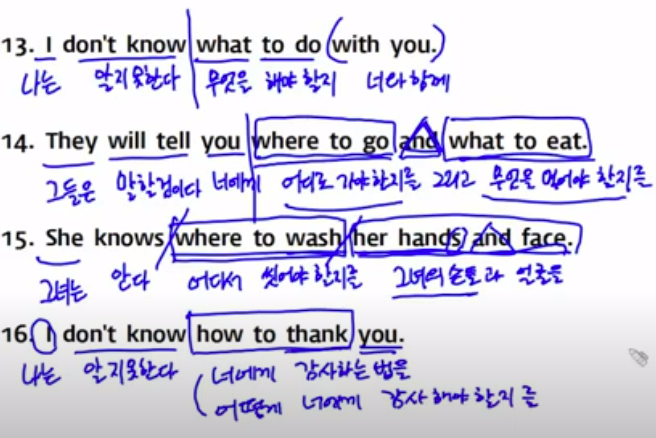 13. I don't know what to do (with you.)
나는 알지못한다 무엇을 해야 할지 너와 함께
14. They will tell you where to go and what to eat.
그들은 말할것이다 너에게 어디로 가야할지를 그리고 무엇을 먹어야 할지를
15. She knows where to wash her hands and face.
그녀는 안다 어디서 씻어야할지를 그녀의 손들과 얼굴을
16. I don't know how to thank you.
나는 알지못한다 너에게 감사하는법을
어떻게 너에게 감사해야할지를